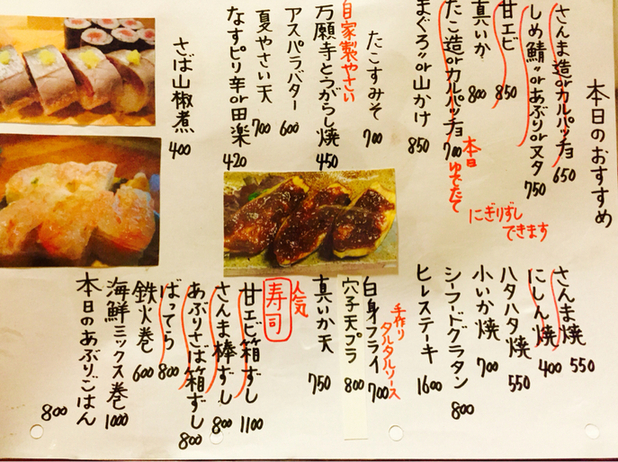 本日のおすすめ
さんま造orカルパッチョ 650
しめ鯖〃orあぶりorヌタ 750
甘エビ 850
真いか 800
たこ造orカルパッチョ 700
本日ゆでたて
にぎりずしできます
まぐろ〃or山かけ 850
たこすみそ 700
自家製やさい
万願寺とうがらし焼 450
アスパラバター 600
夏やさい天 700
なすピリ辛or田楽 420
さば山椒煮 400
さんま焼 550
にしん焼 400
ハタハタ焼 550
小いか焼 700
シーフードグラタン 800
ヒレステーキ 1600
手作りタルタルソース
白身フライ 700
穴子天プラ 800
真いか天 750
人気
寿司
甘エビ箱ずし 1100
さんま棒ずし 800
あぶりさば箱ずし 800
ばってら 800
鉄火巻 600
海鮮ミックス巻 1000
本日のあぶりごはん 800